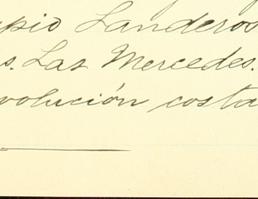 upio Landeros
s. Las Mercedes.
evolución costa